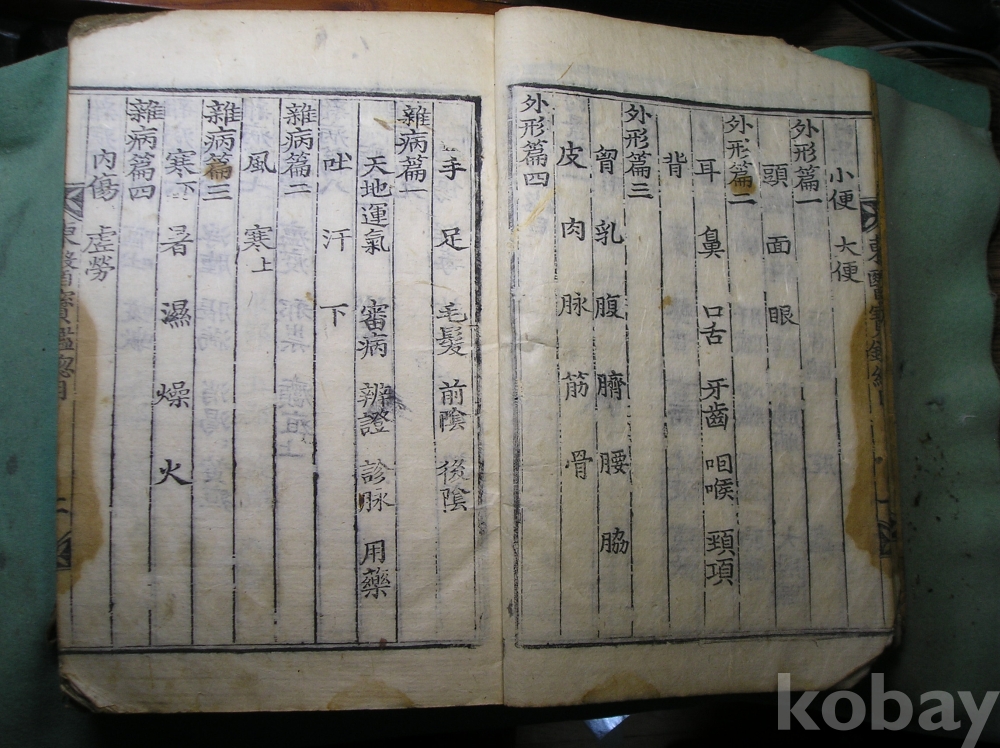 小便 大便
外形篇一
頭 面 眼
外形篇二
耳 鼻 口舌 牙齒 咽喉 頸項
背
外形篇三
胷 乳 腹 臍 腰 脇
皮 肉 脉 筋 骨
外形篇四
手 足 毛髮 前陰 後陰
雜病篇一
天地運氣 審病 辨證 診脉 用藥
吐 汗 下
雜病篇二
風 寒上
雜病篇三
寒下 暑 濕 燥 火
雜病篇四
內傷 虛勞
東醫寶鑑總目 二
kobay